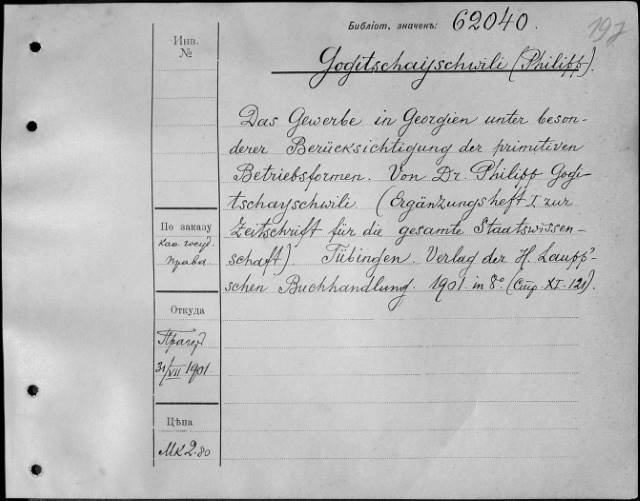 Библіот. значенъ: 62040.
197
Инв.
№
Gogitschayschwili (Philipp).
Das Gewerbe in Georgien unter beson-
derer Berücksichtigung der primitiven
Betriebsformen. Von Dr. Philipp Gogi-
tschayschwili. (Ergänzungsheft I. zur
Zeitschrift für die gesamte Staatswissen-
schaft). Tübingen. Verlag der H. Laupp'-
schen Buchhandlung. 1901. in 8° (Стр. XI-121).
По заказу
Каѳ. госуд.
права
Откуда
31/VII 1901.
Цѣна
Мк 2.80